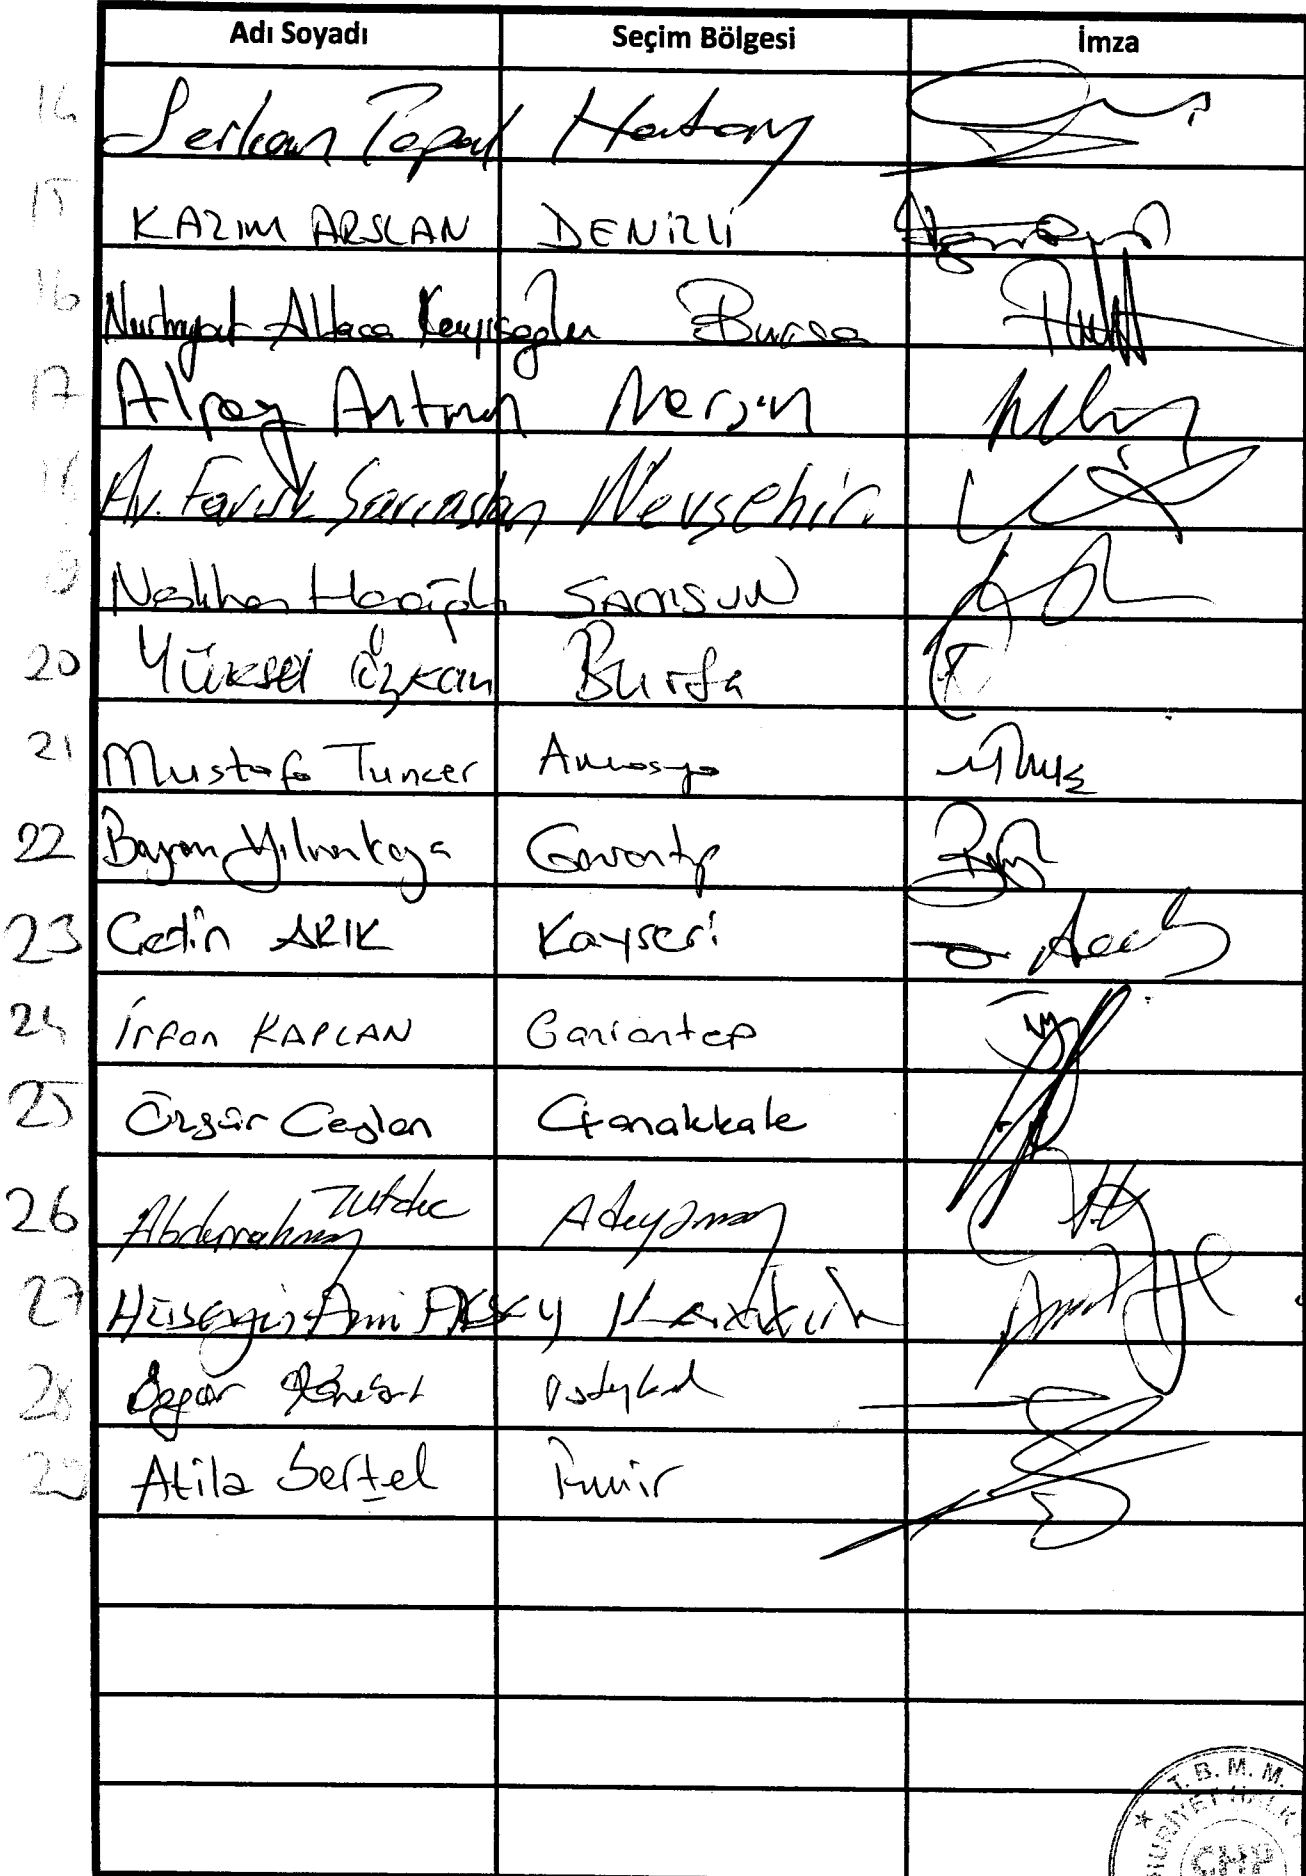 Adı Soyadı Seçim Bölgesi İmza
14 Serkan Topal Hatay
15 KAZIM ARSLAN DENİZLİ
16 Nurhayat Altaca Kayışoğlu Bursa
17 Alpay Antmen Mersin
18 Av. Faruk Sarıaslan Nevşehir.
Neslihan Hancıoğlu SAMSUN
20 Yüksel Özkan Bursa
21 Mustafa Tuncer Amasya
22 Bayram Yılmazkaya Gaziantep
23 Çetin ARIK Kayseri
24 İrfan KAPLAN Gaziantep
25 Özgür Ceylan Çanakkale
26 Abdurrahman Tutdere Adıyaman
27 Hüseyin Avni AKSOY Karabük
28 Özgür
29 Atila Sertel İzmir
T. B. M. M.
CHP